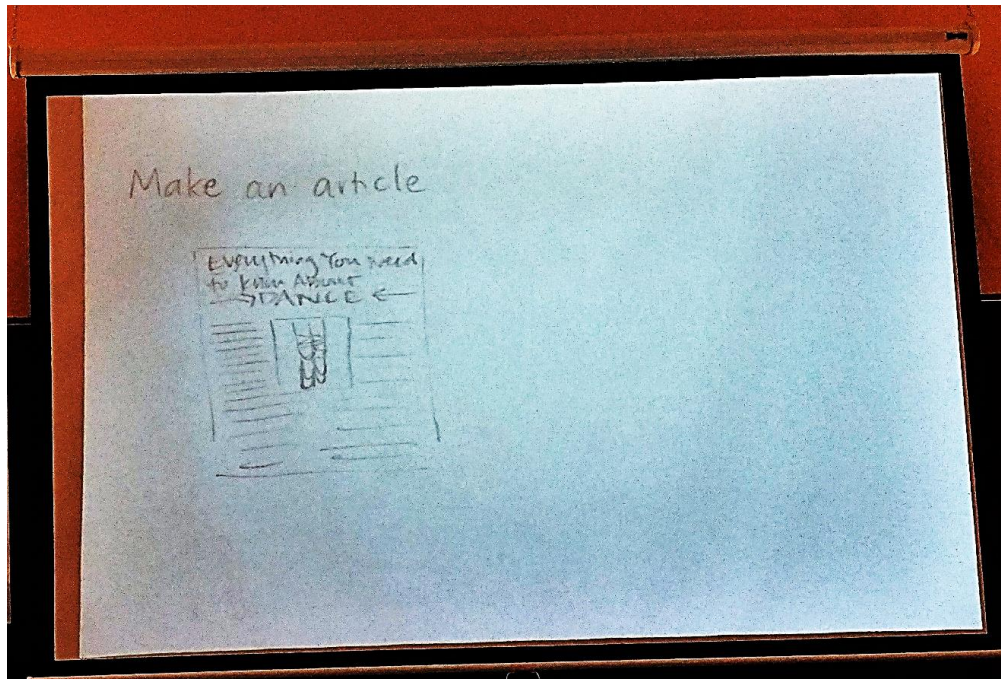 Make an article
Everything You Need
to Know About
→DANCE←